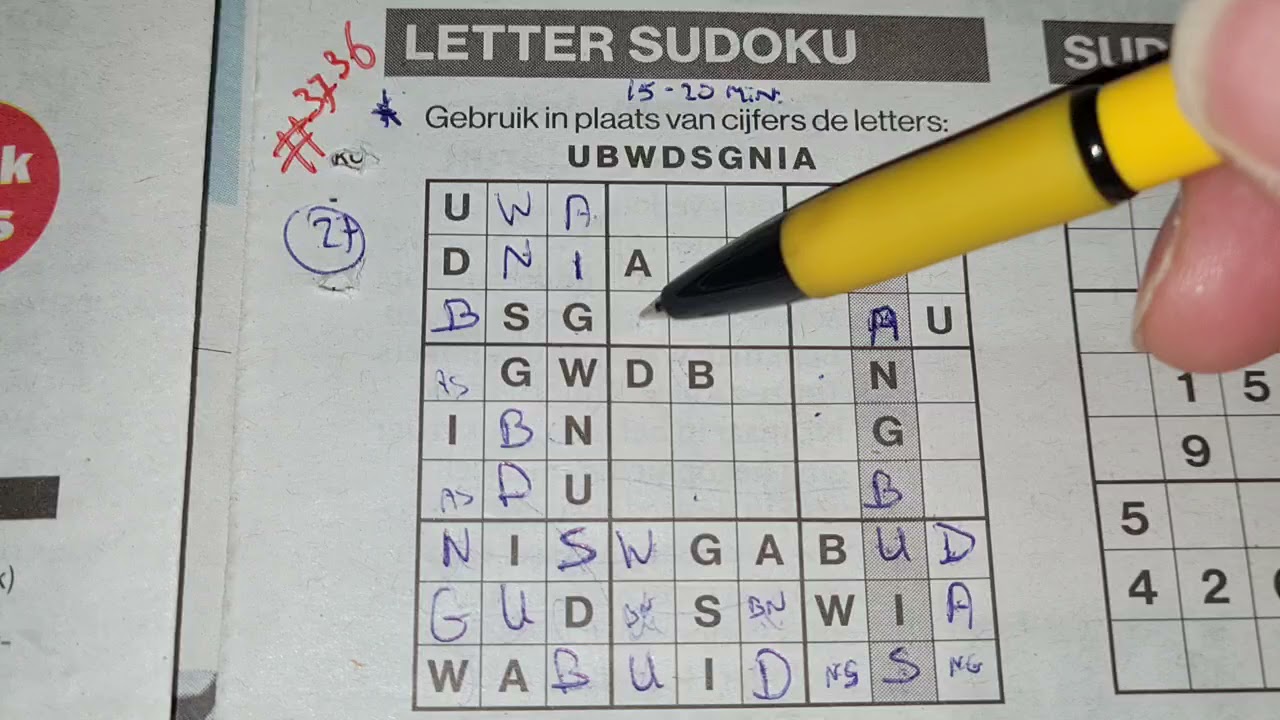 LETTER SUDOKU
SUD
#3736
15-20 MIN.
* Gebruik in plaats van cijfers de letters:
UBWDSGNIA
k
s
27
U W A
D N I A
B S G A U
AS G W D B N
1 5
I B N G
9
AS D U B
5
N I S W G A B U D
4 2
G U D BN S BN W I A
W A B U I D NG S NG